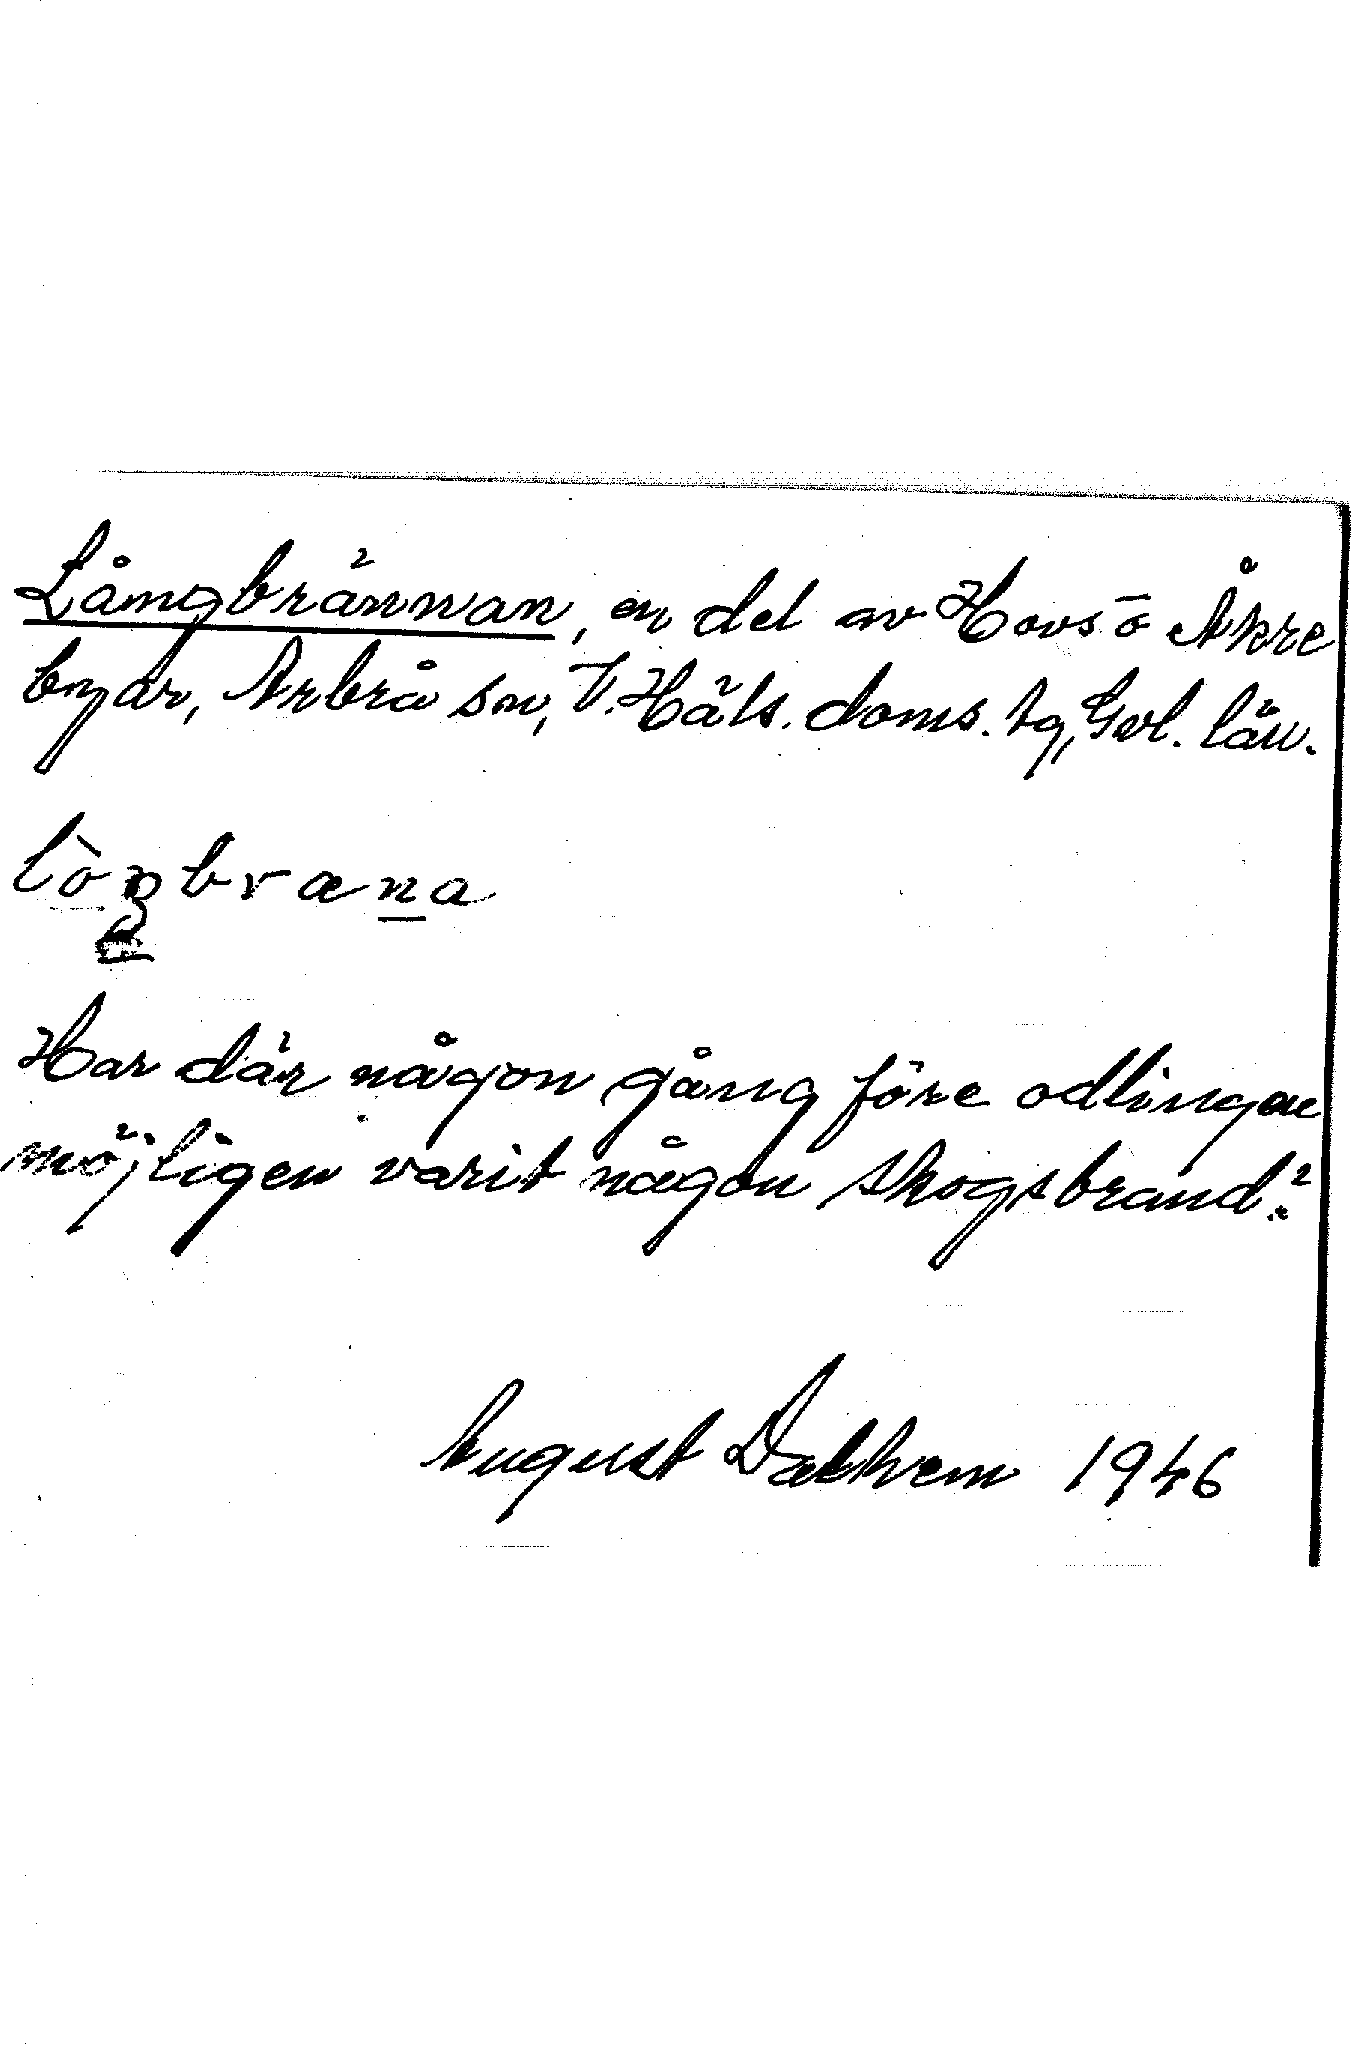 Långbrännan, en del av Hovs ō Åkre
byar, Arbrå sn, V. Häls. doms. tg, Gvl. län.
lòŋbræna
Har där någon gång före odlingen
möjligen varit någon skogsbrand?
August Dalhem 1946